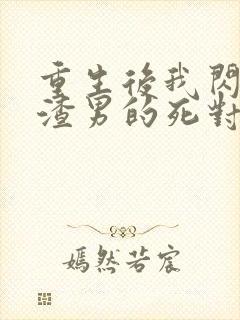 重生後我閃
渣男的死對
嫣然若宸